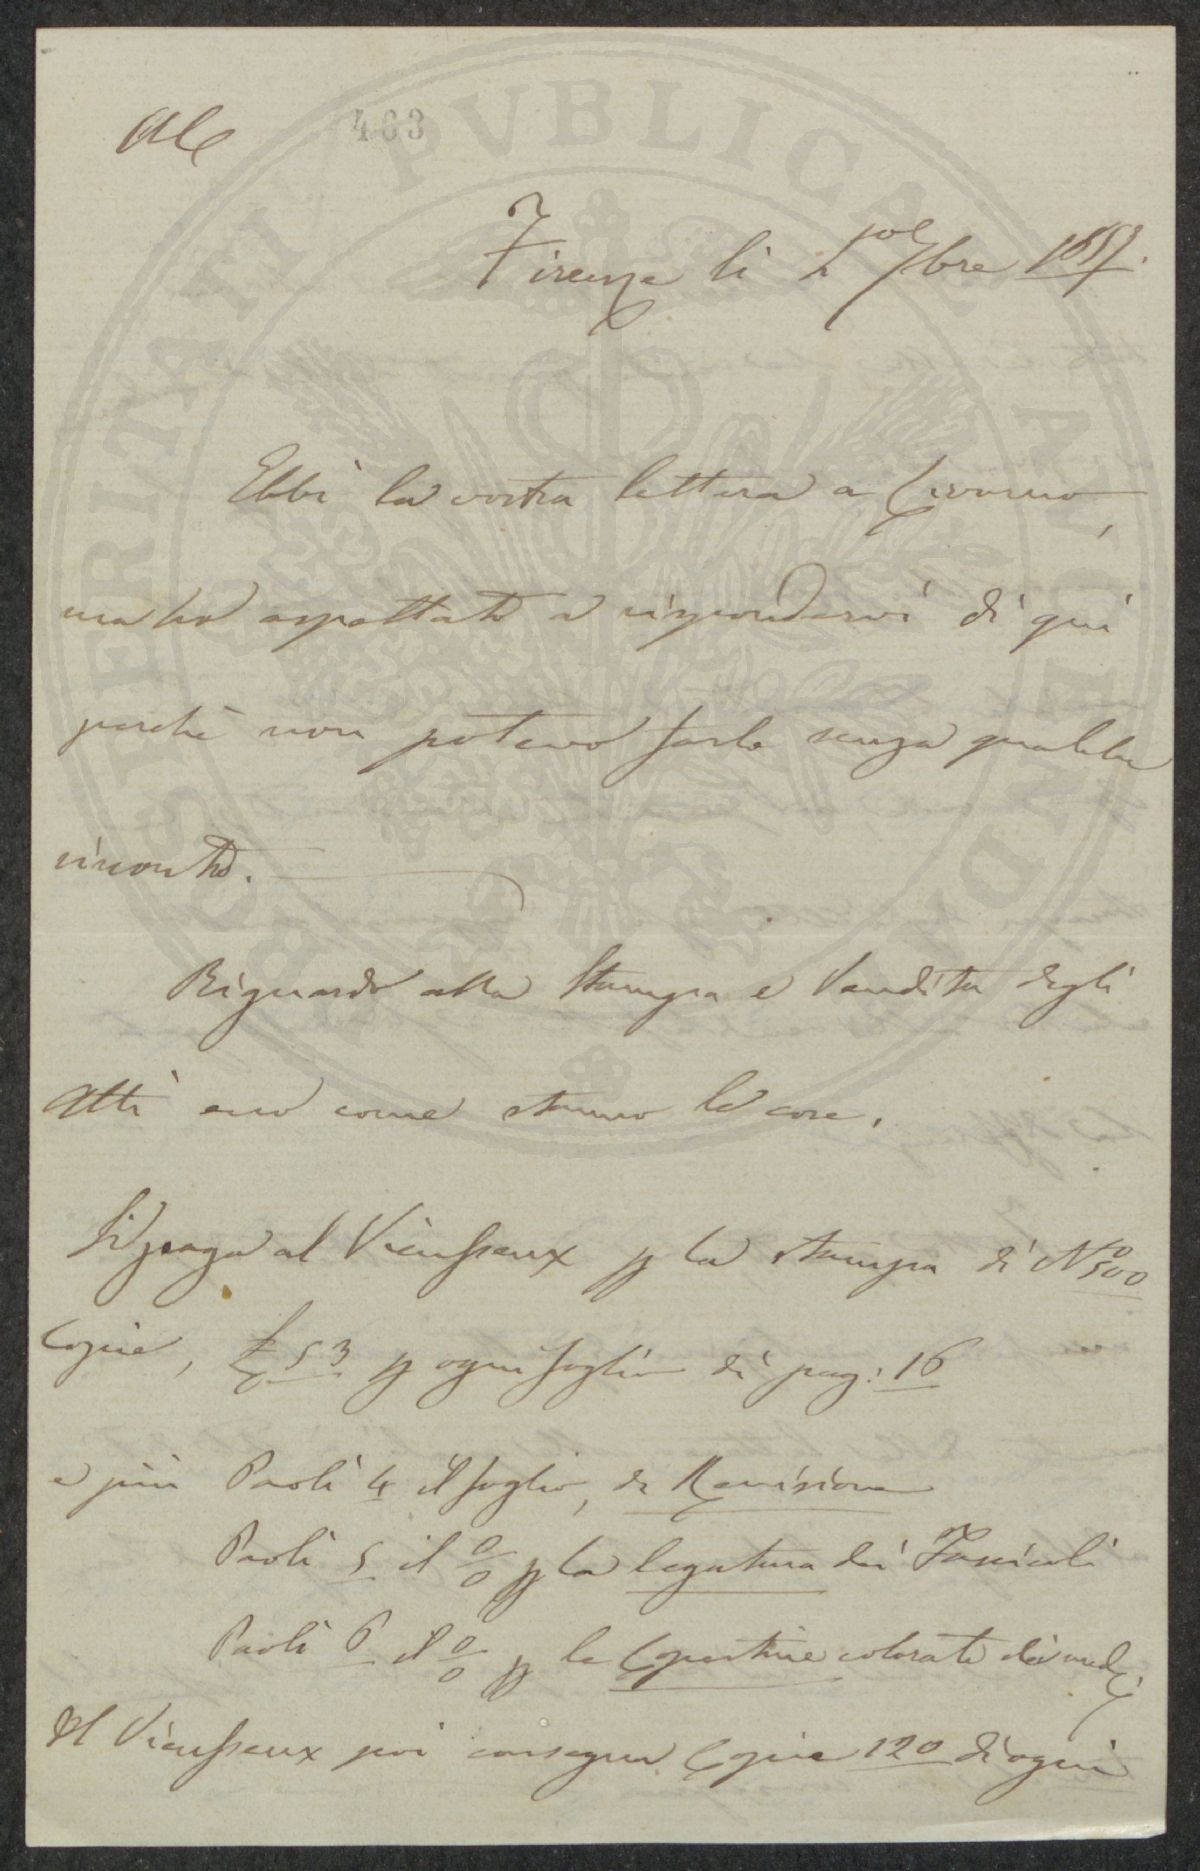 463
Firenze li 1mo 7bre 1857.
Ebbi la vostra lettera a Livorno,
ma ho aspettato a rispondervi di qui
perchè non potevo farlo senza qualche
riscontro.
Riguardo alla Stampa e Vendita degli
Atti ecco come stanno le cose.
Si paga al Vieusseux p la stampa di No 500
Copie, £ 53 p ogni foglio di pag: 16
e più Paoli 4 il foglio, di Revisione
Paoli 5 il % p la legatura dei Fascicoli
Paoli 6 il % p le Copertine colorate dei med.i
Il Vieusseux poi consegna Copie 120 di ogni
PROSPERITATI PVBLICAE AVGENDAE